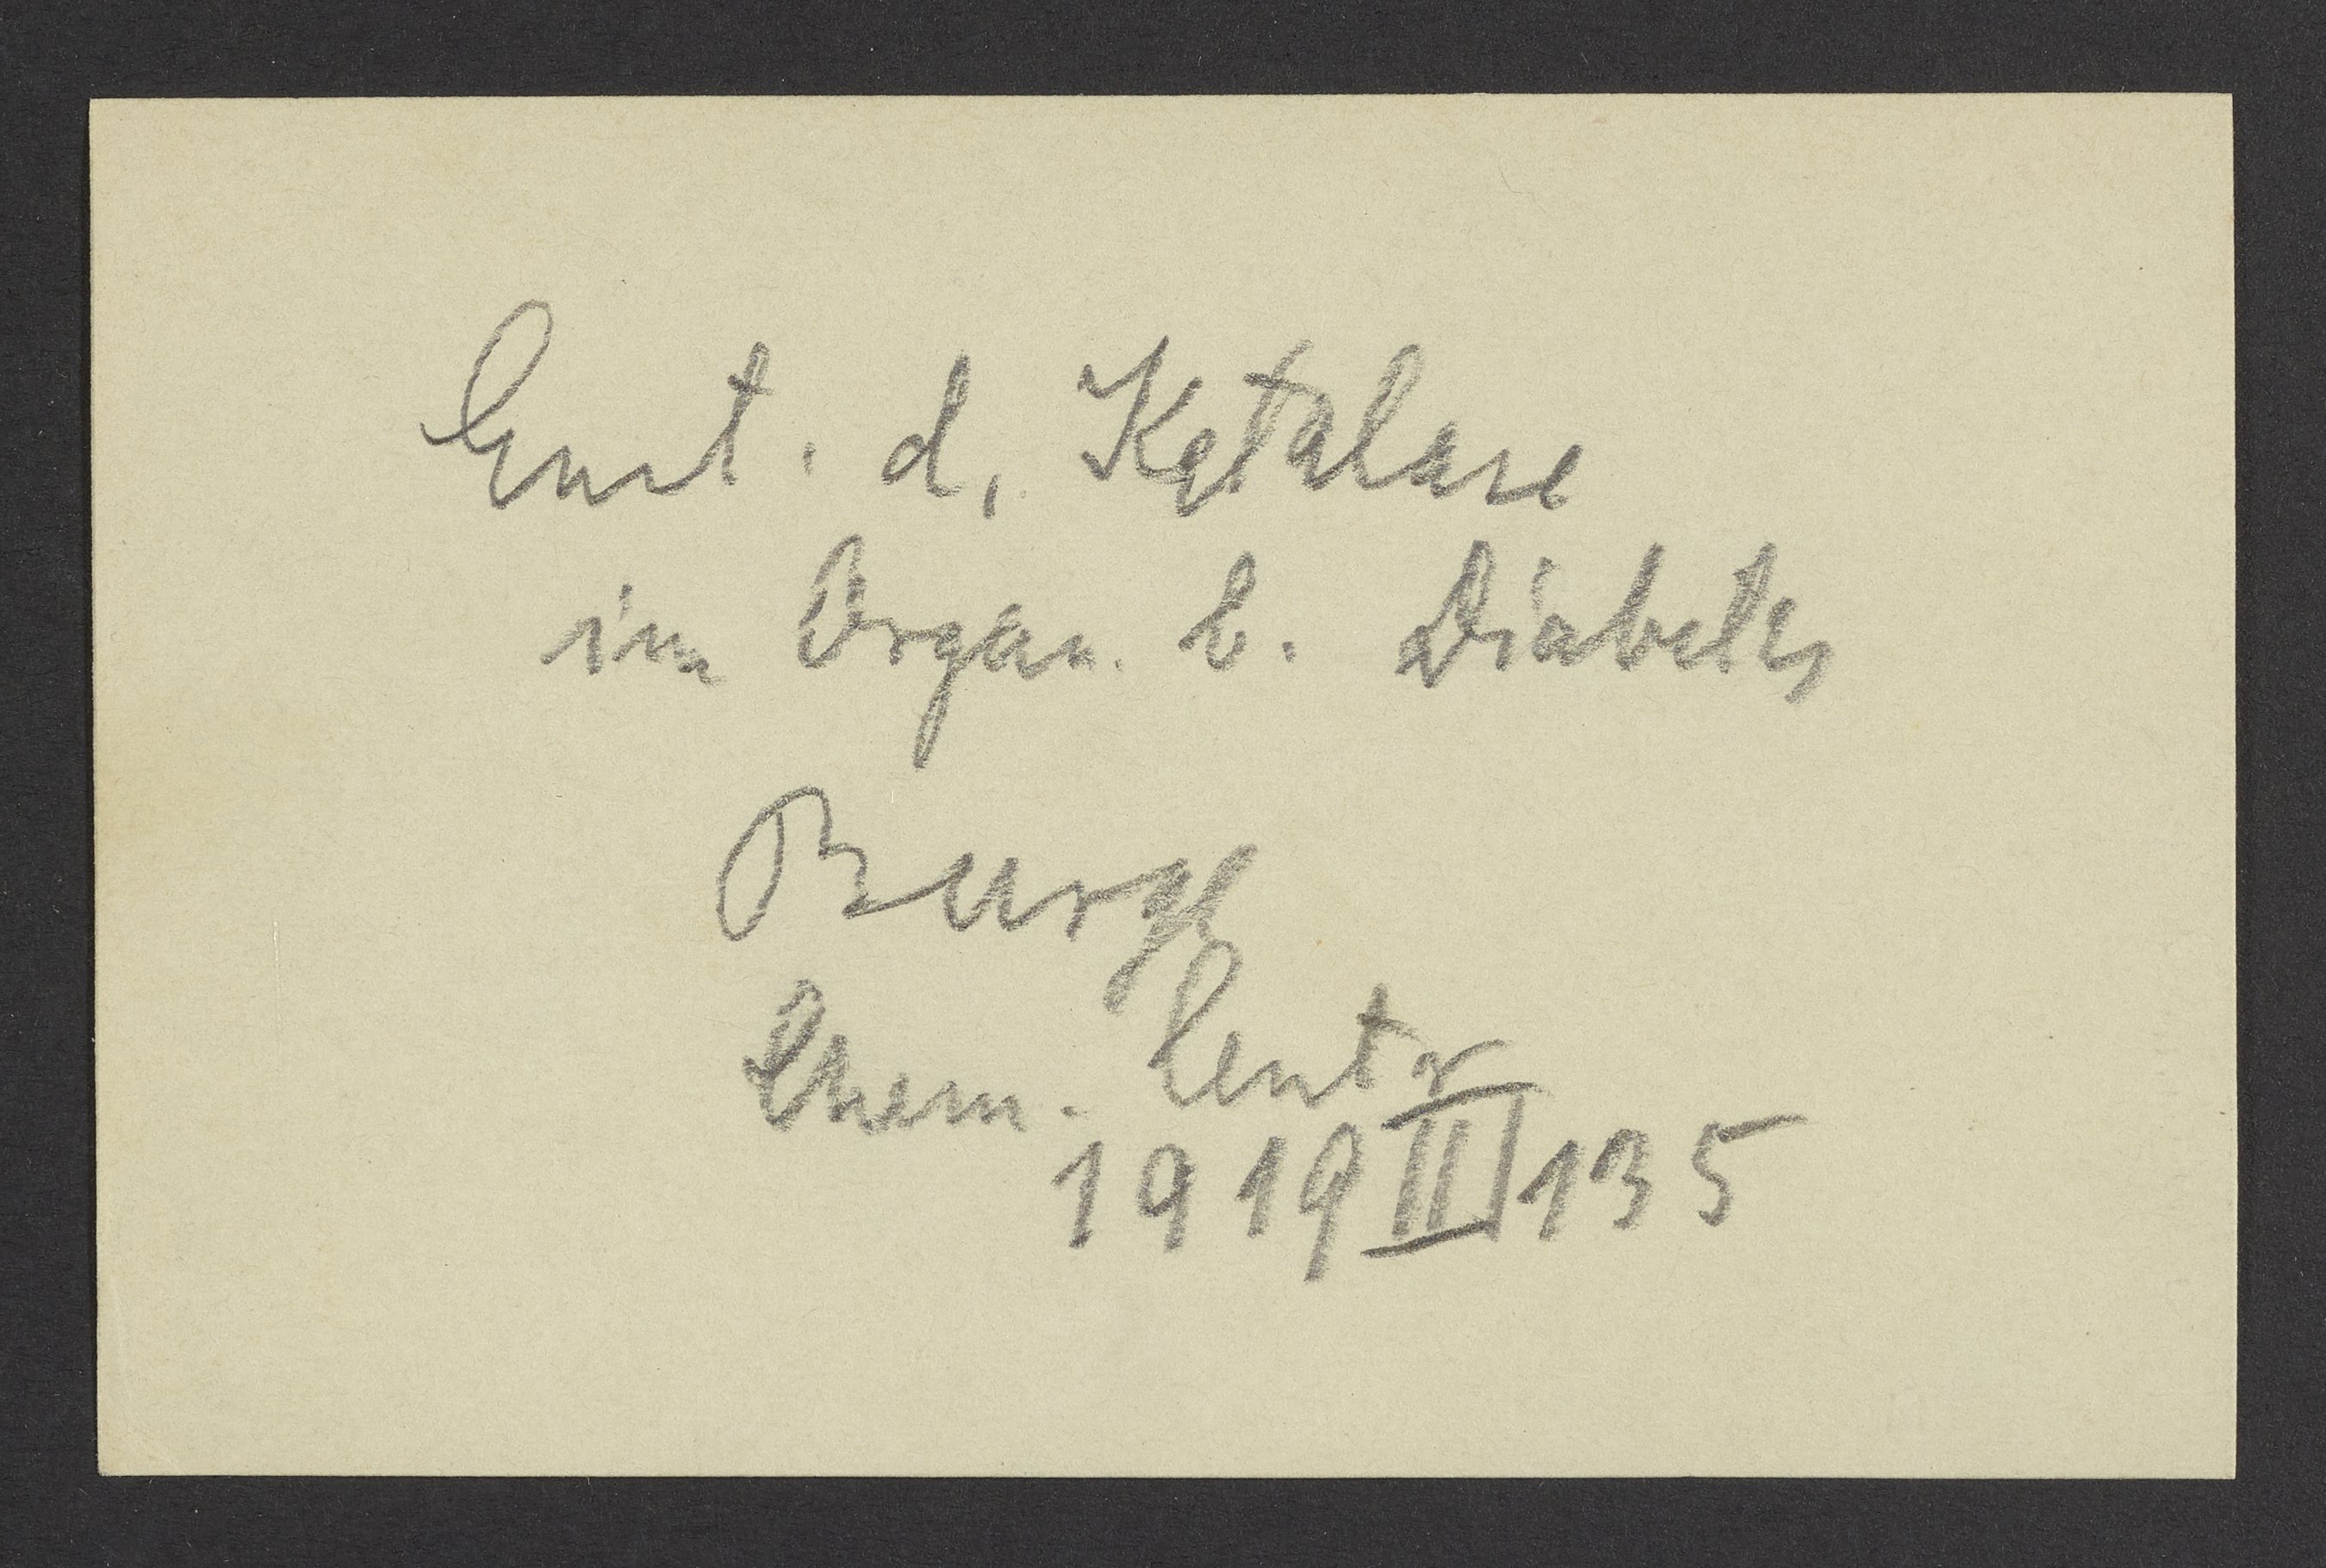 Ernt. d. Katalase
im Organ. b. Diabetes
Burge
Chem. Centr
1919 III 135